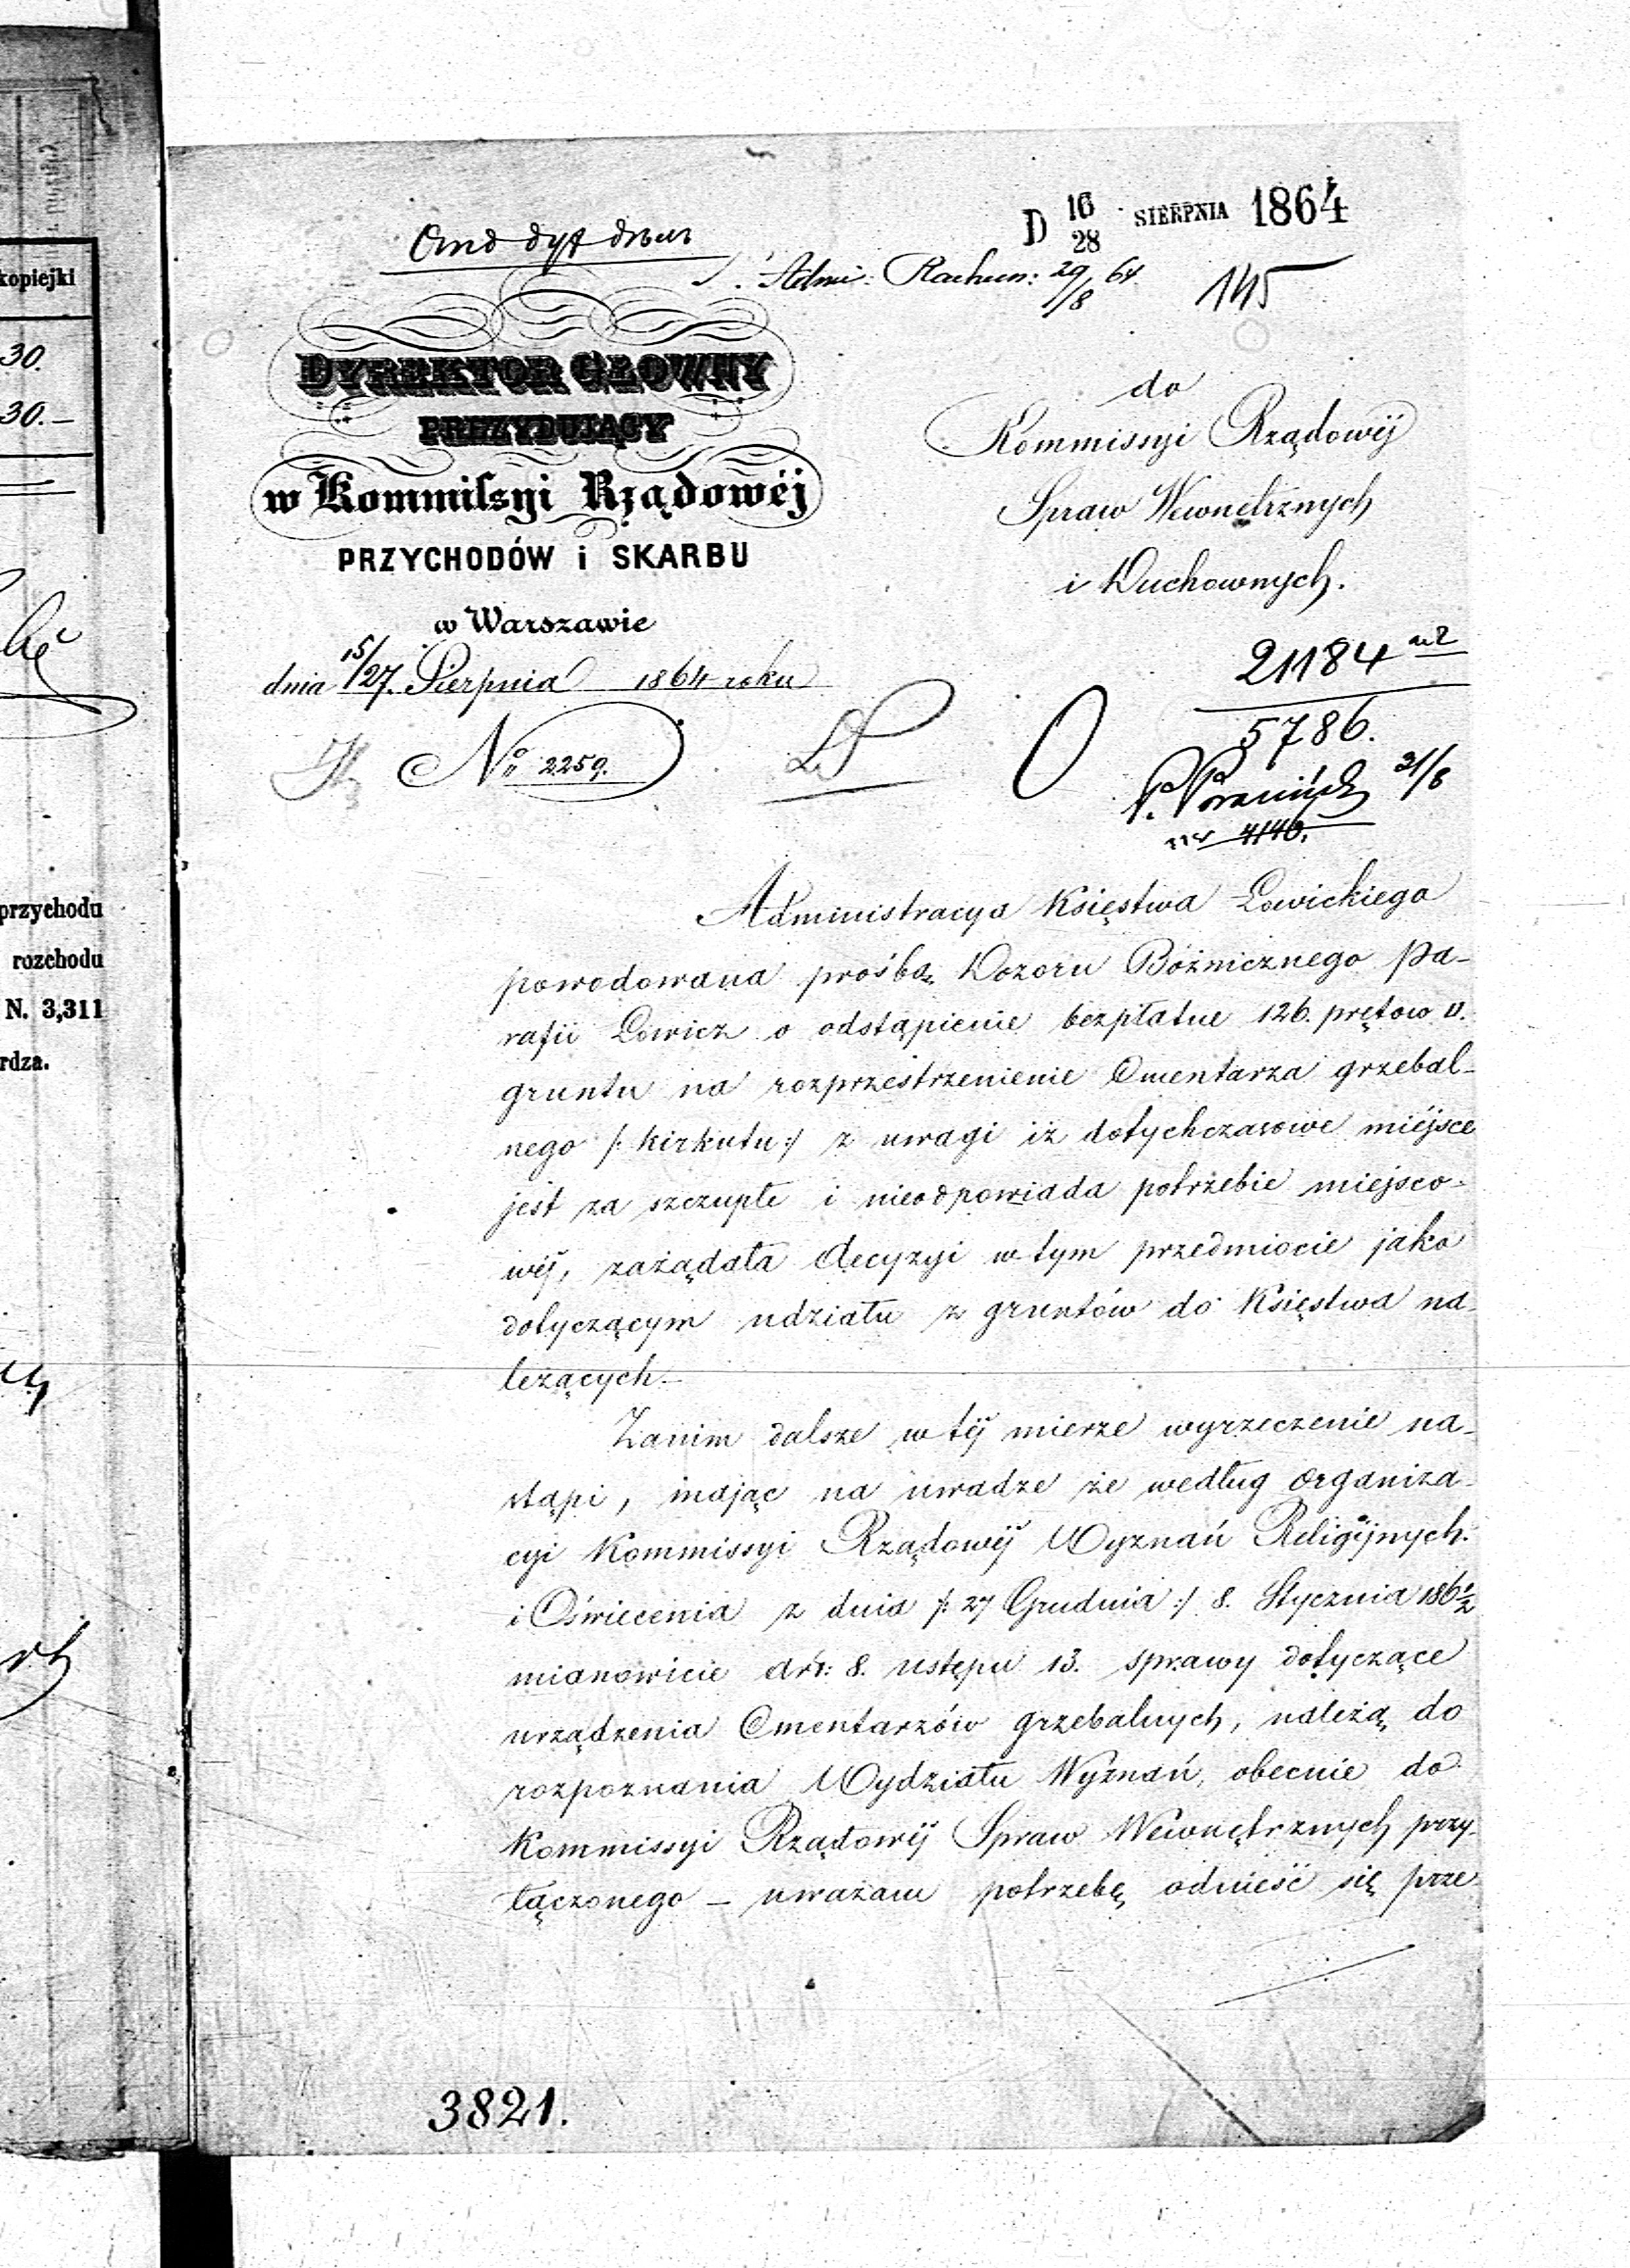 kopiejki
30.
30.—
przychodu
rozchodu
N. 3,311
rdza.
D 16/28 SIERPNIA 1864
Admi: Rachun: 29/8 64
145
DYREKTOR GŁOWNY
PREZYDUJĄCY
w Kommissyi Rządowéj
PRZYCHODÓW i SKARBU
w Warszawie
dnia 15/27. Sierpnia 1864 roku
No 2259.
do
Kommissyi Rządowéj
Spraw Wewnętrznych
i Duchownych.
21184
5786.
31/8
4140.
Administracya Księstwa Łowickiego
powodowana prośbą Dozoru Bóżnicznego pa-
rafii Łowicz o odstąpienie bezpłatne 126. prętow □.
gruntu na rozprzestrzenienie Cmentarza grzebal-
nego /: kirkutu :/ z uwagi iż dotychczasowe miéjsce
jest za szczupłe i nieodpowiada potrzebie miejsco-
wéj, zażądała decyzyi w tym przedmiocie jako
dotyczącym udziału z gruntów do Księstwa na-
leżących.—
Zanim dalsze w téj mierze wyrzeczenie na-
stąpi, mając na uwadze że według organiza-
cyi Kommissyi Rządowéj Wyznań Religijnych
i Oświecenia z dnia /: 27 Grudnia :/ 8. Stycznia 186½
mianowicie art: 8. ustępu 13. sprawy dotyczące
urządzenia Cmentarzów grzebalnych, należą do
rozpoznania Wydziału Wyznań, obecnie do
Kommissyi Rządowéj Spraw Wewnętrznych przy-
łączonego — uważam potrzebę odnieść się prze
3821.